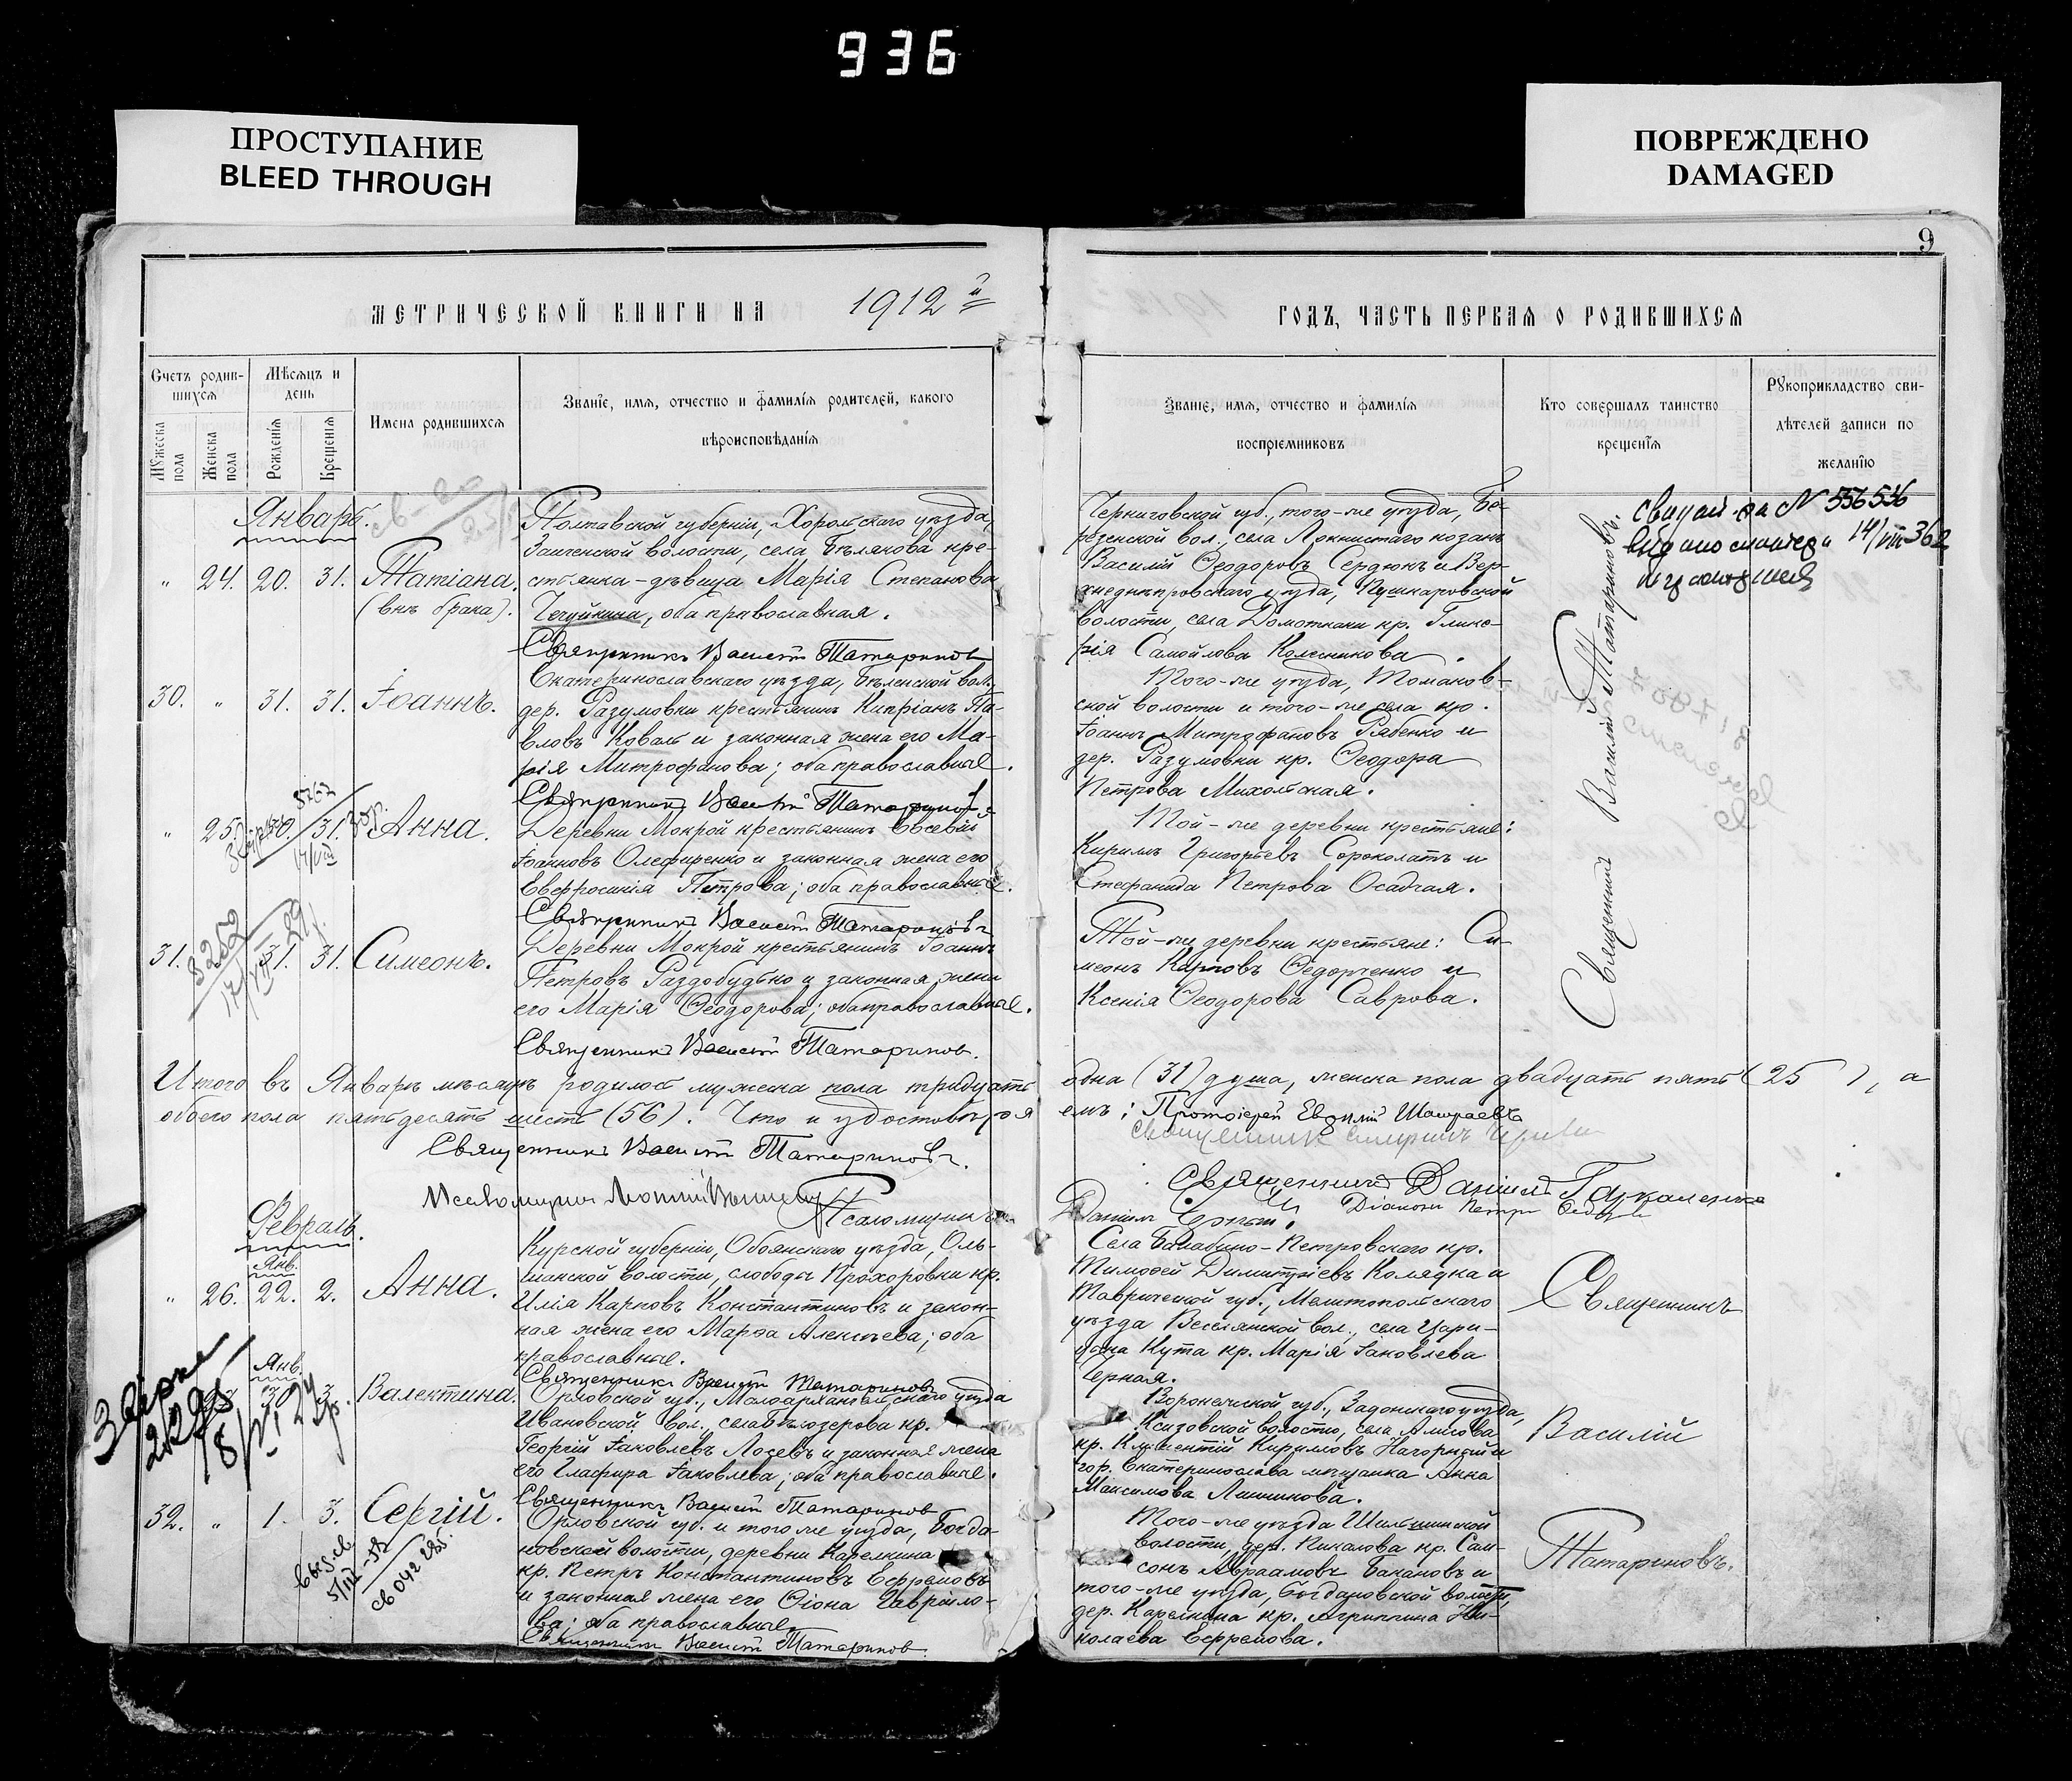 936
ПРОСТУПАНИЕ
BLEED THROUGH
ПОВРЕЖДЕНО
DAMAGED
9
МЕТРИЧЕСКОЙ КНИГИ НА 1912 й
ГОДЪ, ЧАСТЬ ПЕРВАЯ О РОДИВШИХСЯ
Счетъ родив-
шихся
Мужеска пола
Женска пола
Мѣсяцъ и
день
Рожденія
Крещенія
Имена родившихся
Званіе, имя, отчество и фамилія родителей, какого
вѣроисповѣданія
Званіе, имя, отчество и фамилія
воспріемниковъ
Кто совершалъ таинство
крещенія
Рукоприкладство сви-
дѣтелей записи по
желанію
Январь.
" 24. 20. 31. Татіана.
(внѣ брака).
Полтавской губерніи, Хорольскаго уѣзда,
волости, села Бѣлякова кре-
стьянка-дѣвица Марія Степанова
оба православная.
Священникъ Василій Татариновъ
Черниговской губ., того-же уѣзда, Бе-
резенской вол., села Локнистаго козакъ
Василій Ѳеодоровъ Сердюкъ и Вер-
хнеднѣпровскаго уѣзда, Пушкаровской
волости, села Домоткани кр. Глике-
рія Самойлова Колесникова.
30. " 31. 31. Іоаннъ.
Екатеринославскаго уѣзда, Бѣленской вол.,
дер. Разумовки крестьянинъ Кипріанъ Па-
вловъ Коваль и законная жена его Ма-
рія Митрофанова; оба православные.
Священникъ Василій Татариновъ
Того-же уѣзда, Томаков-
ской волости и того-же села кр.
Іоаннъ Митрофановъ Рябенко и
дер. Разумовки кр. Ѳеодора
Петрова Михольская.
" 25. 30. 31. Анна.
Деревни Мокрой крестьянинъ Евсевій
Іоанновъ Олефиренко и законная жена его
Евфросинія Петрова; оба православные.
Священникъ Василій Татариновъ
Той-же деревни крестьяне:
Кириллъ Григорьевъ Сороколатъ и
Стефанида Петрова Осадчая.
31. " 31. 31. Симеонъ.
Деревни Мокрой крестьянинъ Іоаннъ
Петровъ Раздобудько и законная жена
его Марія Ѳеодорова; оба православные.
Священникъ Василій Татариновъ.
Той-же деревни крестьяне: Си-
меонъ Карповъ Ѳедорченко и
Ксенія Ѳеодорова Саврова.
Священникъ Василій Татариновъ.
№ 556536
14/VIII 362
Итого въ Январѣ мѣсяцѣ родилось мужеска пола тридцать одна (31) душа, женска пола двадцать пять (25), а
обоего пола пятьдесятъ шесть (56). Что и удостовѣряемъ: Протоіерей Евѳимій
Священникъ Василій Татариновъ.
Священникъ Даніилъ
Псаломщикъ
Псаломщикъ
Даніилъ Діаконъ Петръ
Февраль.
Янв.
" 26. 22. 2. Анна.
Курской губерніи, Обоянскаго уѣзда, Оль-
шанской волости, слободы Прохоровки кр.
Илія Карповъ Константиновъ и закон-
ная жена его Марѳа Алексѣева; оба
православные.
Священникъ Василій Татариновъ
Села Балабино-Петровскаго кр.
Тимоѳей Димитріевъ Колядка и
Таврической губ., Мелитопольскаго
уѣзда Веселянской вол., села Цари-
цына Кута кр. Марія Іаковлева
Черная.
Янв.
30. 3. Валентина.
Орловской губ., Малоархангельскаго уѣзда
Ивановской вол., села Бѣлозерова кр.
Георгій Іаковлевъ Лозевъ и законная жена
его Глафира Іаковлева; оба православные.
Священникъ Василій Татариновъ
Воронежской губ., Задонскаго уѣзда,
Ксизовской волости, села
кр. Климентій Кирилловъ Нагорный и
гор. Екатеринослава мѣщанка Анна
Максимова
32. " 1. 3. Сергій.
Орловской губ. и того же уѣзда, Богда-
новской волости, деревни Карелкина
кр. Петръ Константиновъ Ефремовъ
и законная жена его Ѳіона Гавріило-
ва; оба православные.
Священникъ Василій Татариновъ.
Того-же уѣзда
волости, дер. Пикалова кр. Сам-
сонъ Авраамовъ Бакановъ и
того-же уѣзда, Богдановской волости,
дер. Карелкина кр. Агриппина Ни-
колаева Ефремова.
Священникъ
Василій
Татариновъ.